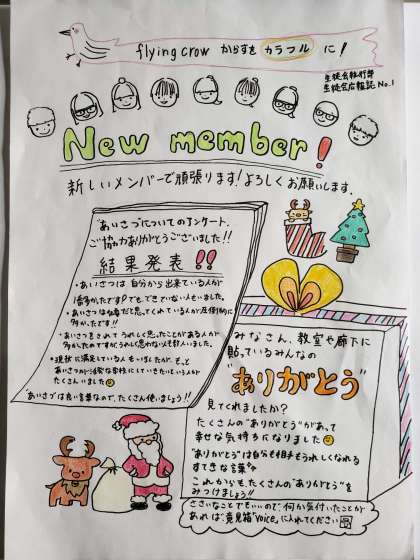 flying crow からすを カラフル に!
生徒会執行部
生徒会広報誌 No.1
New member!
新しいメンバーで頑張ります!よろしくお願いします。
"あいさつ"についてのアンケート、
ご協力ありがとうございました!!
結果発表!!
・あいさつは自分から出来ている人が
多かったです!でも、できていない人もいました。
・あいさつは大事だと思ってくれている人が圧倒的に
多かったです!!
・あいさつをされてうれしく思ったことがある人が
多かったですがうれしく思わない人も数人いました。
・現状に満足している人もいましたが、もっと
あいさつが活発な学校にしていきたいという人が
たくさんいました
"あいさつ"は良い言葉なので、たくさん使いましょう!!
みなさん、教室や廊下に
貼っているみんなの
"ありがとう"
見てくれましたか?
たくさんの"ありがとう"があって
幸せな気持ちになりました
"ありがとう"は自分も相手もうれしくなれる
すてきな言葉
これからもたくさんの"ありがとう"を
みつけましょう!!
ささいなことでもいいので、何か気付いたことが
あれば、意見箱"Voice"に入れてください